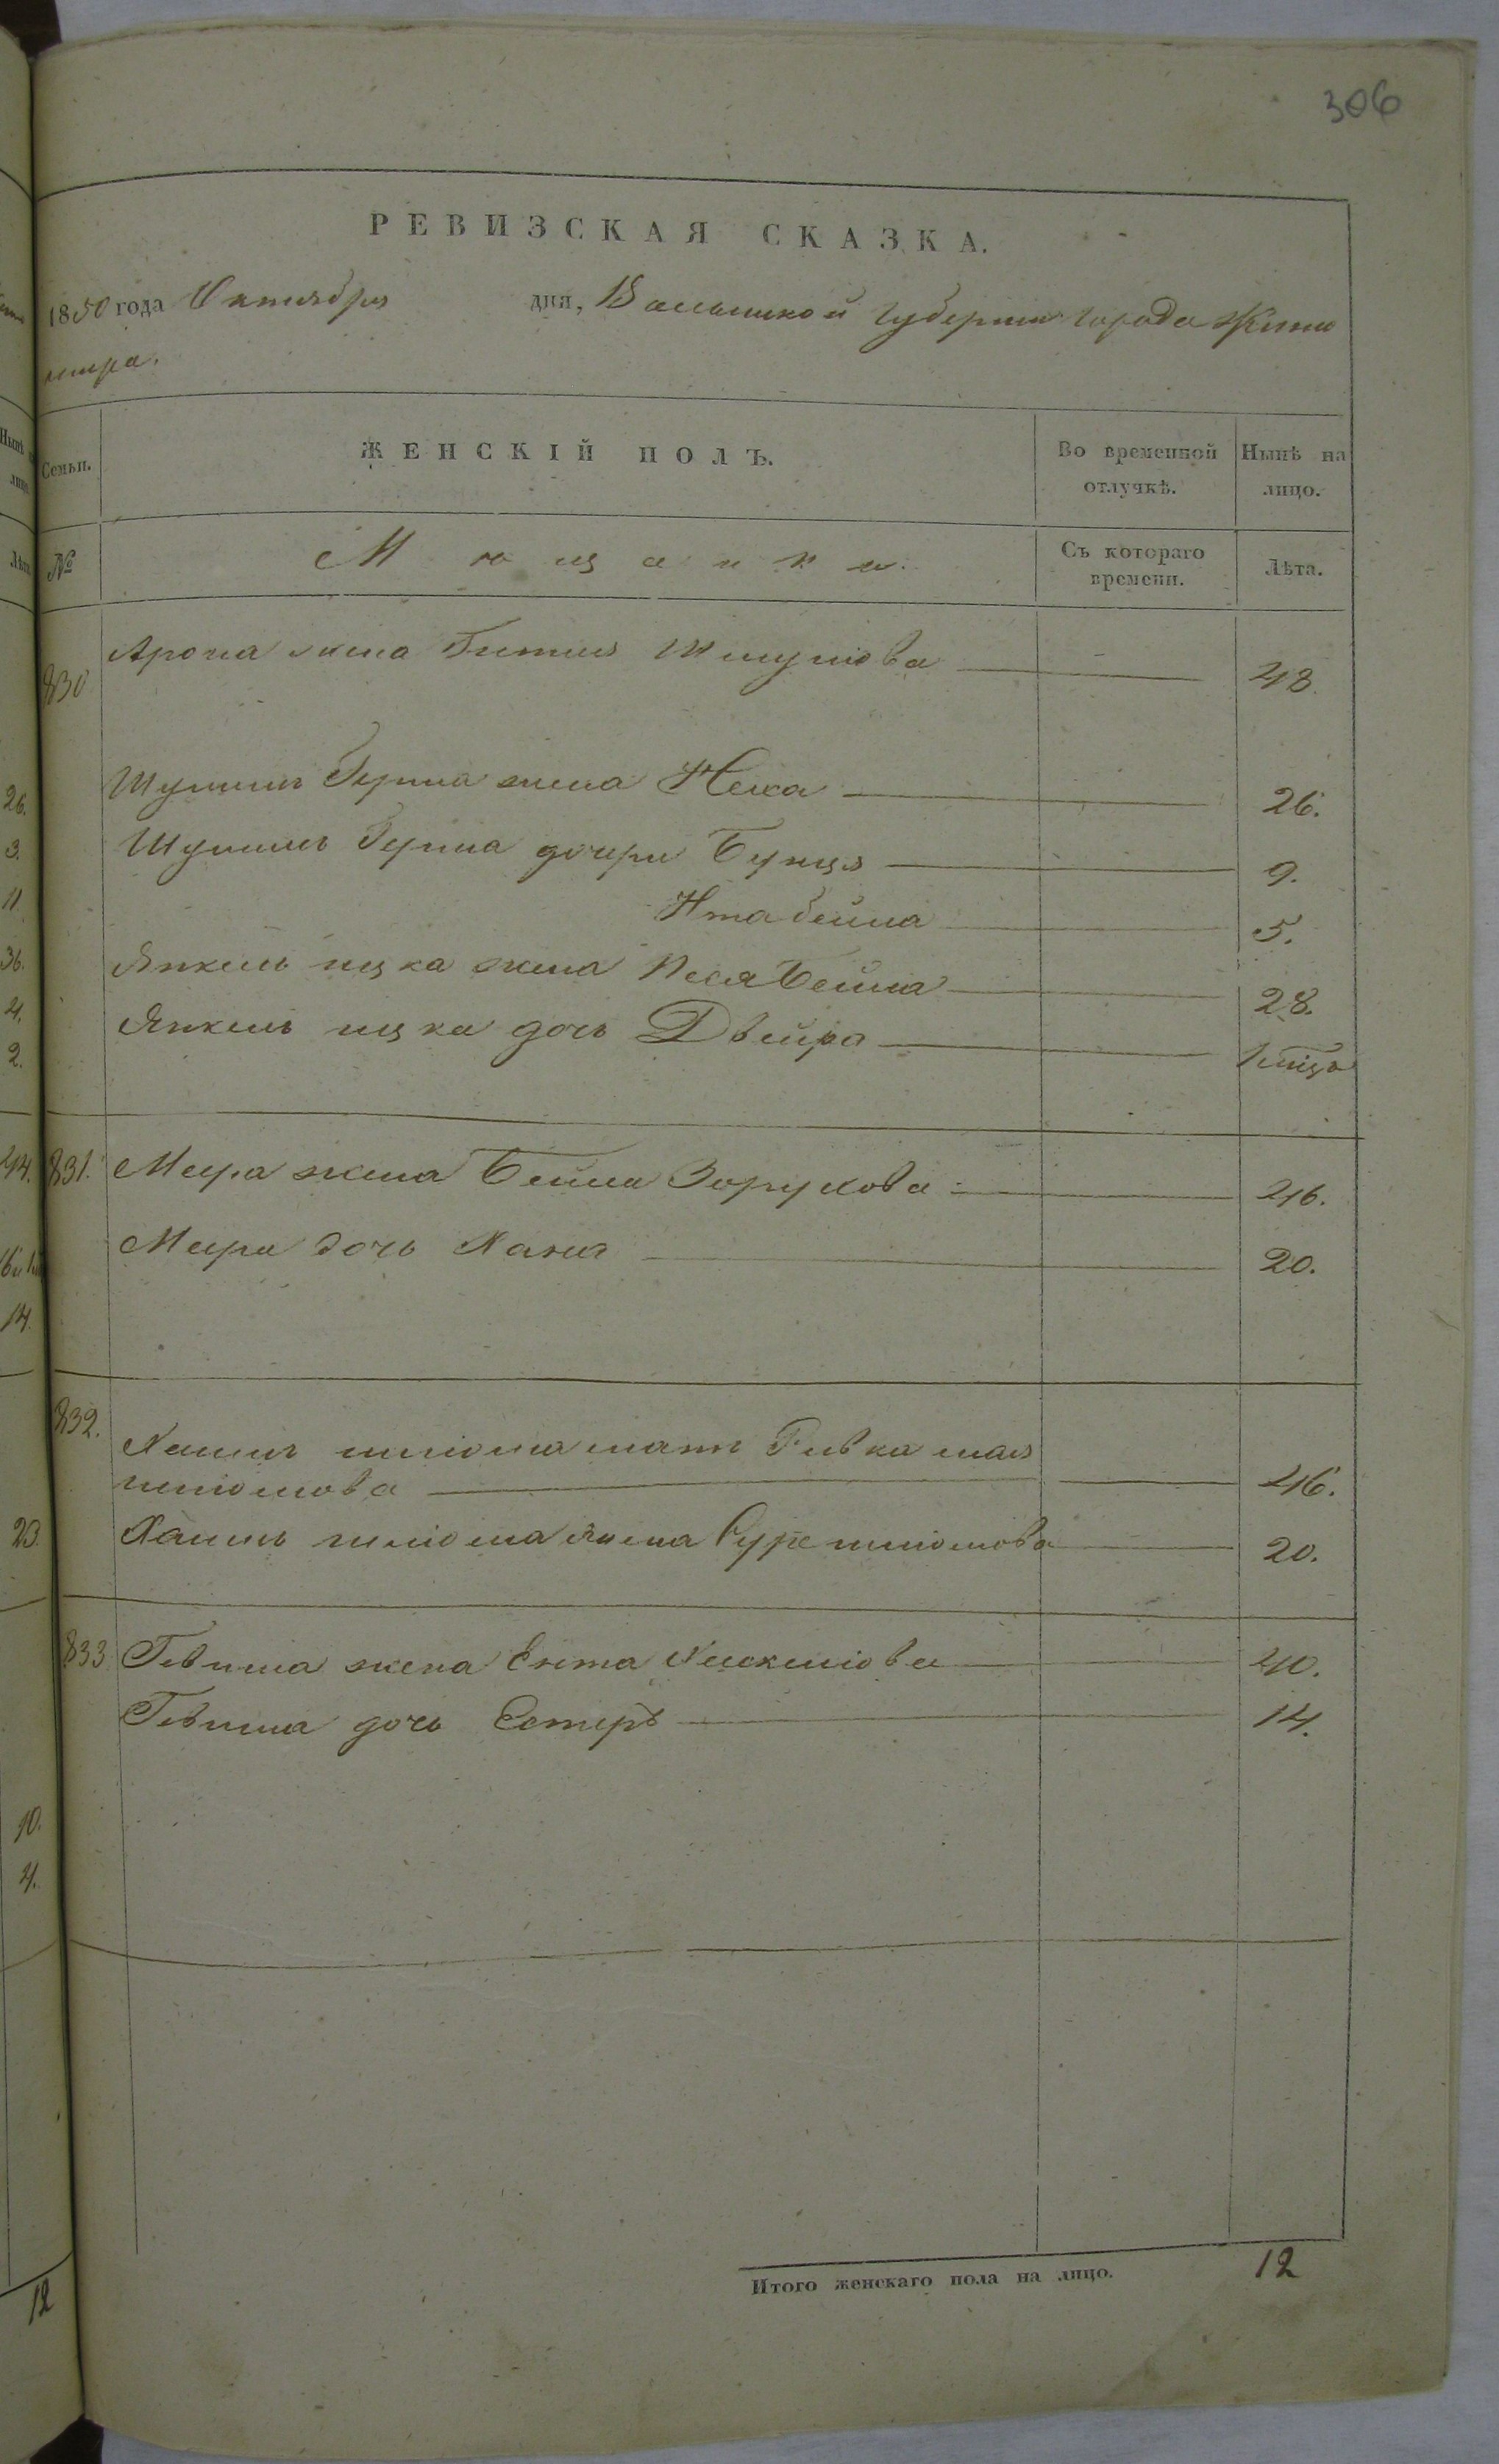 306
РЕВИЗСКАЯ СКАЗКА.
1850 года Октября дня, Волынской Губернии города Жито
мира.
Семьи. ЖЕНСКІЙ ПОЛЪ. Во временной отлучкѣ. Нынѣ на лицо.
№ Мѣщанки. Съ котораго времени. Лѣта.
830 Арона жена Гитля Шмулiова 48.
Шулимъ Герша жена Неха 26.
Шулимъ Герша дочери Бунця 9.
Ита бейла 5.
Янкель ицка жена Песя Бейла 28.
Янкель ицка дочь Двейра
831. Меера жена Бейла 46.
Меера дочь Хана 20.
832.
Хаимъ шлiома мать Ривка
шлiомова 46.
Хаимъ шлiома жена Сура шлiомова 20.
833 жена Ента Хаскелiова 40.
дочь Естеръ 14.
Итого женскаго пола на лицо. 12
26.
3.
11
36.
4.
2.
44.
14.
23.
10.
4.
12